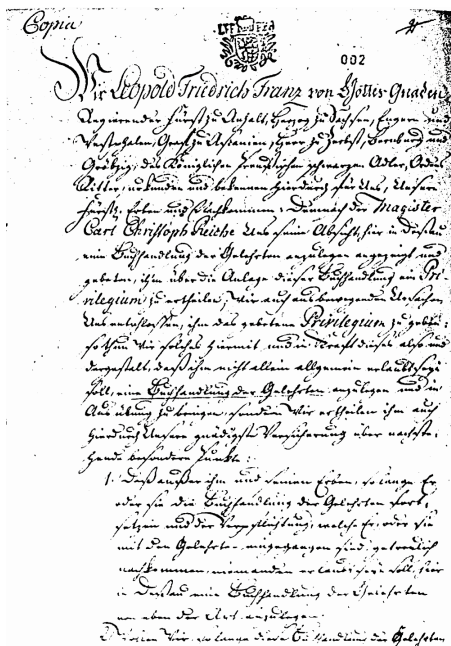 Copia
002
Wir Leopold Friedrich Franz von Gottes Gnaden,
Regierender Fürst zu Anhalt, Herzog zu Sachsen, Engern und
Westphalen, Graf zu Ascanien, Herr zu Zerbst, Bernburg und
Gröbzig, des Königlichen Preußischen schwarzen Adler, Ordens
Ritter, urkunden und bekennen hierdurch für Uns, Unsere
Fürstl. Erben und Nachkommen: Demnach der Magister
Carl Christoph Reiche Uns seine Absicht, hier in Dessau
eine Buchhandlung der Gelehrten anzulegen angezeigt und
gebeten, ihm über die Anlage dieser Buchhandlung ein Pri-
vilegium zu ertheilen; Wir auch aus bewegenden Ursachen
Uns entschlossen, ihm das gebetene Privilegium zu geben:
so thun Wir solches hiermit und in Kraft dieses also und
dergestalt, daß ihm nicht allein allgemein erlaubt seyn
soll, eine Buchhandlung der Gelehrten anzulegen und in
Ausübung zu bringen, sondern Wir ertheilen ihm auch
hierdurch Unsere gnädigste Versicherung über nachste-
hende besondere Punkte:
1. Daß außer ihm und seinen Erben, so lange Er
oder sie die Buchhandlung der Gelehrten fort-
setzen und die Verpflichtung, welche Er, oder sie
mit den Gelehrten eingegangen sind, getreulich
nachkommen, niemanden erlaubt seyn soll, hier
in Dessau eine Buchhandlung der Gelehrten
von eben der Art anzulegen.
Wir, so lange diese Buchhandlung der Gelehrten